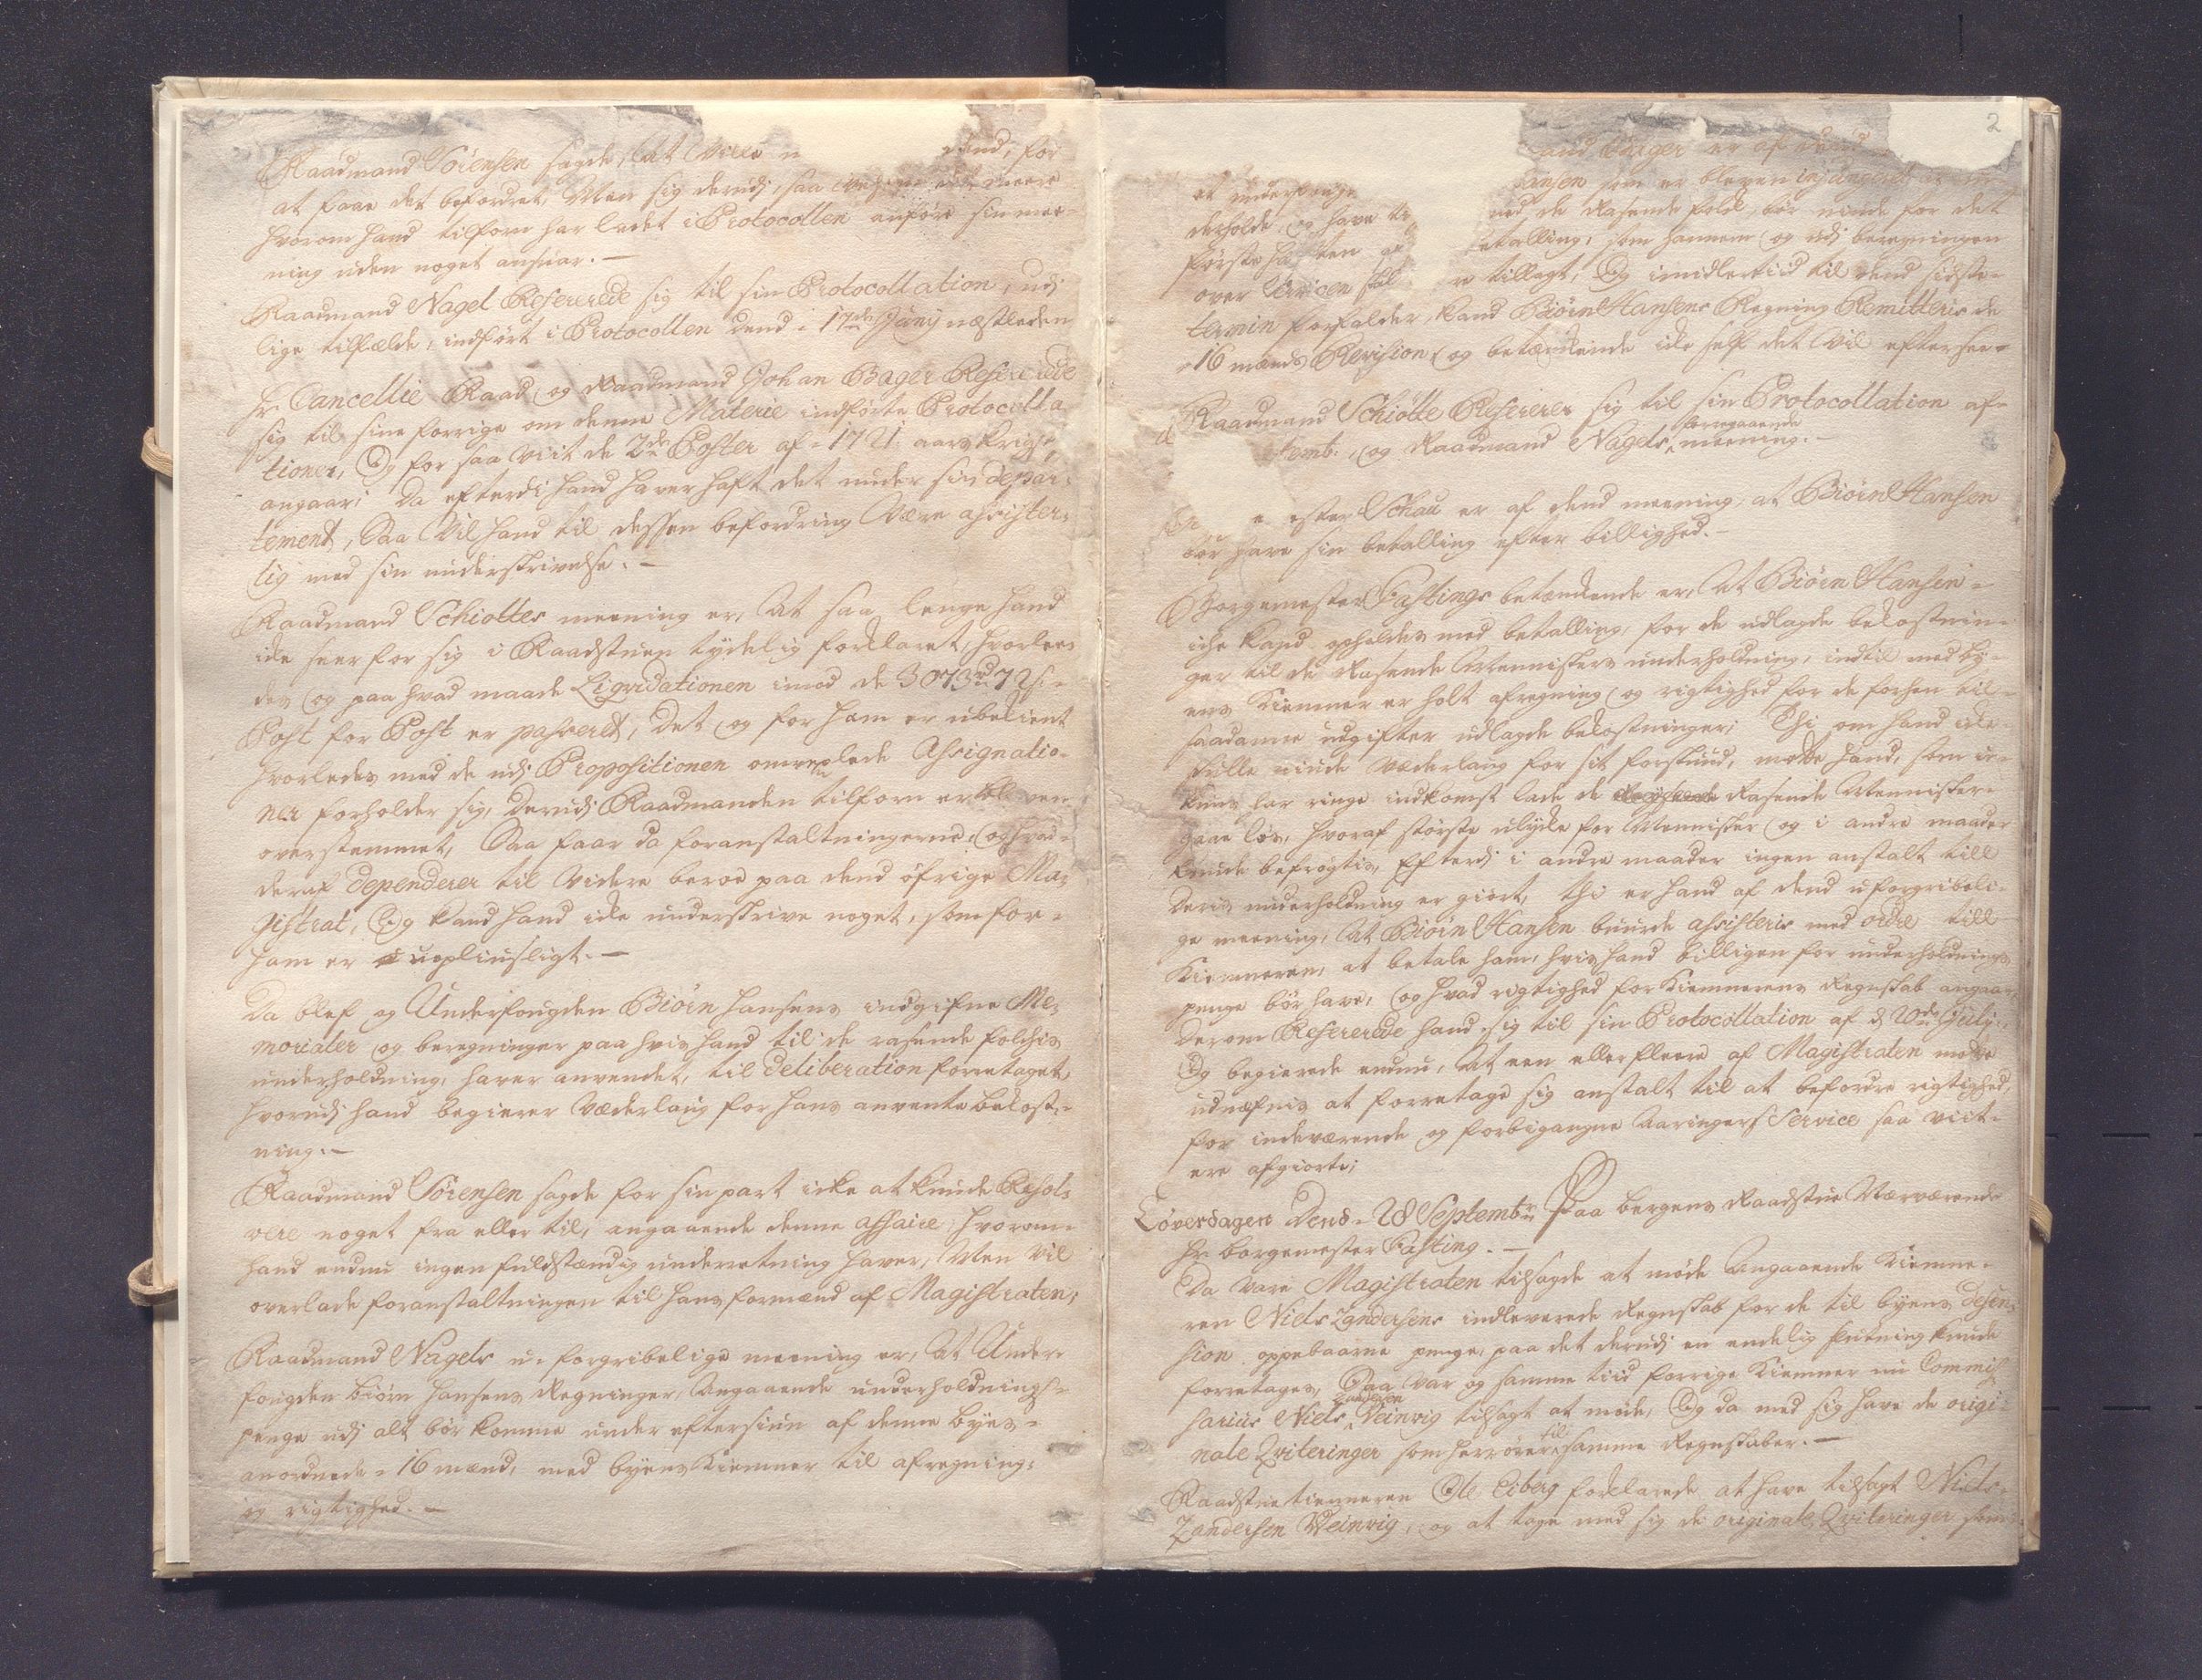 Raadmand Sörensen sagde, at dend, for
at faae det befordret, Men sig derudj, saa meere
hvorom hand tilforn har ladet i Protocollen anföre sin mee-
ning uden noget ansvar.-
Raadmand Nagel Refererede sig til sin Protocollation, udj
lige tilfælde, indfört i Protocollen dend 17de Junij næstleden
Hr. Cancellie Raad og Raadmand Johan Bager Refererede
sig til sine forrige om denne Materie indförte Protocolla
tioner, Og for saa viit de 2de Poster af 1721 aars krigs
angaar; da efterdj hand haver haft det under sin depar-
tement, Saa vil hand til dessen befordring være assister-
lig med sin underskrivelse.-
Raadmand Schiøttes meening er, At saa lenge hand
icke seer for sig i Raadstuen tydelig forklaret, hvorlee-
des og paa hvad maade Liqvidationen imod de
Post for Post er passeret, det og for ham er ubekient
hvorledes med de udj Propositionen ommelte Assignatio-
ner forholder sig, derudj Raadmanden tilforn er bleven
overstemmet, Saa faar da foranstaltningerne, og hvad
deraf dependerer til videre beroe paa dend öfrige Ma-
gistrat, Og kand hand icke underskrive noget, som for-
ham er uoplyseligt.-
Da blef og Underfougden Biörn Hansens indgifne Me-
morialer og beregninger paa hvis hand til de rasende folchis
underholdning, haver anvendet, til deliberation forretaget,
hvorudj hand begierer Vederlaug for hans anvente bekost-
ning.-
Raadmand Sörensen sagde for sin part icke at kunde Resol-
vere noget fra eller til, angaaende denne affaire, hvorom-
hand endnu ingen fuldstændig underretning haver, Men vil
overlade foranstaltningen til hans formænd af Magistraten;
Raadmand Nagels u-forgribelige meening er, At Under-
fougden Biörn Hansens Regninger, Angaaende underholdnings-
penge udj alt bör komme under eftersiun af denne byes-
anordnede 16 mænd, med byens Kiemner til afregning-
og rigtighed.-
2
and Bager er af dend
at underfouge ansen som er bleven
derholde, og have ned de Rasende folck, bör niude for det
förste betalling, som hannem og udj beregningen
over tillagt, Og imidlertiid til dend sidste-
termin forfalder, kand Biörn Hansens Regning Remitteris de
16 mænds Revision og betænckende icke self det vil eftersee-
Raadmand Schiötte Refererer sig til sin Protocollation af-
temb:, og Raadmand Nagels forregaaende meening.-
ester Schau er af dend meening, at Biörn Hansen
bör have sin betalling efter billighed.-
Borgemester Fastings betænckende er, At Biörn Hansen-
iche kand opholdes med betalling, for de udlagde bekostnin-
ger til de Rasende Menniskers underholdning, indtil med by-
ens Kiemner er holt afregning og rigtighed for de forhen til-
saadanne udgifter udlagde bekostninger; Thi om hand icke-
skulle niude Vederlaug for sit forskud, motte hand, som ic-
kuns har ringe indkomst lade de Rasende Mennisker-
gaae lös, hvoraf störste ulycke for Mennisker og i andre maader
kunde befrögtis, Efterdj i andre maader ingen anstalt till
deris underholdning er giort, thi er hand af dend uforgribeli-
ge meening, At Biörn Hansen burde assisteris med ordre till
Kiemneren, at betale ham, hvis hand billigen for underholdnings
penge bör have, og hvad rigtighed for Kiemnerens Regnskab angaar,
derom Refererede hand sig til sin Protocollation af d 20de July,
Og begierede endnu, At een eller fleere af Magistraten motte
udnæfnes at forretage sig anstalt til at befordre rigtighed,
for indeværende og forbigangne Aaringers Service saa viit-
ere afgiorte;
Löverdagen Dend 28 Septembr. Paa bergens Raadstue Nærværende
Hr. borgemester Fasting.-
Da vare Magistraten tilsagde at möde Angaaende Kiemne-
ren Niels Zandersens indleverede Regnskab for de til byens defen-
sion oppebaarne penge, paa det derudj en endelig slutning kunde
forretages, Saa var og samme tiid forrige Kiemner nu Commis-
sarius Niels Zandersen Weinvig tilsagt at möde, Og da med sig have de origi-
nale Qviteringer som henrörer til samme Regnskaber.-
Raadstuetienneren Ole Eiberg forklarede at have tilsagt Niels-
Zandersen Weinvig, og at tage med sig de originale Qviteringer som